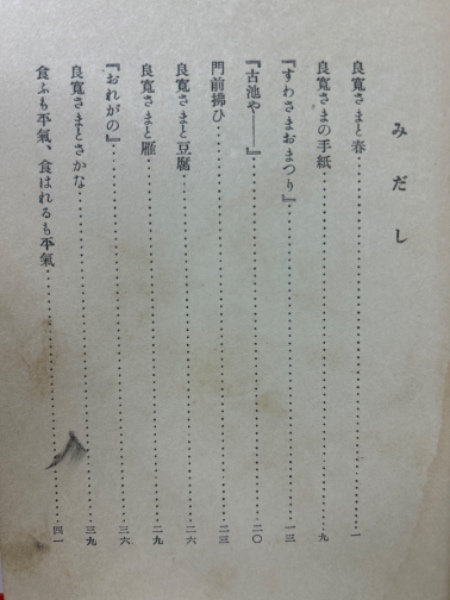 みだし
良寬さまと春……一
良寬さまの手紙……九
『すわさまおまつり』……一三
『古池や――』……二〇
門前拂ひ……二三
良寬さまと豆腐……二六
良寬さまと雁……二九
『おれがの』……三六
良寬さまとさかな……三九
食ふも平氣、食はれるも平氣……四一